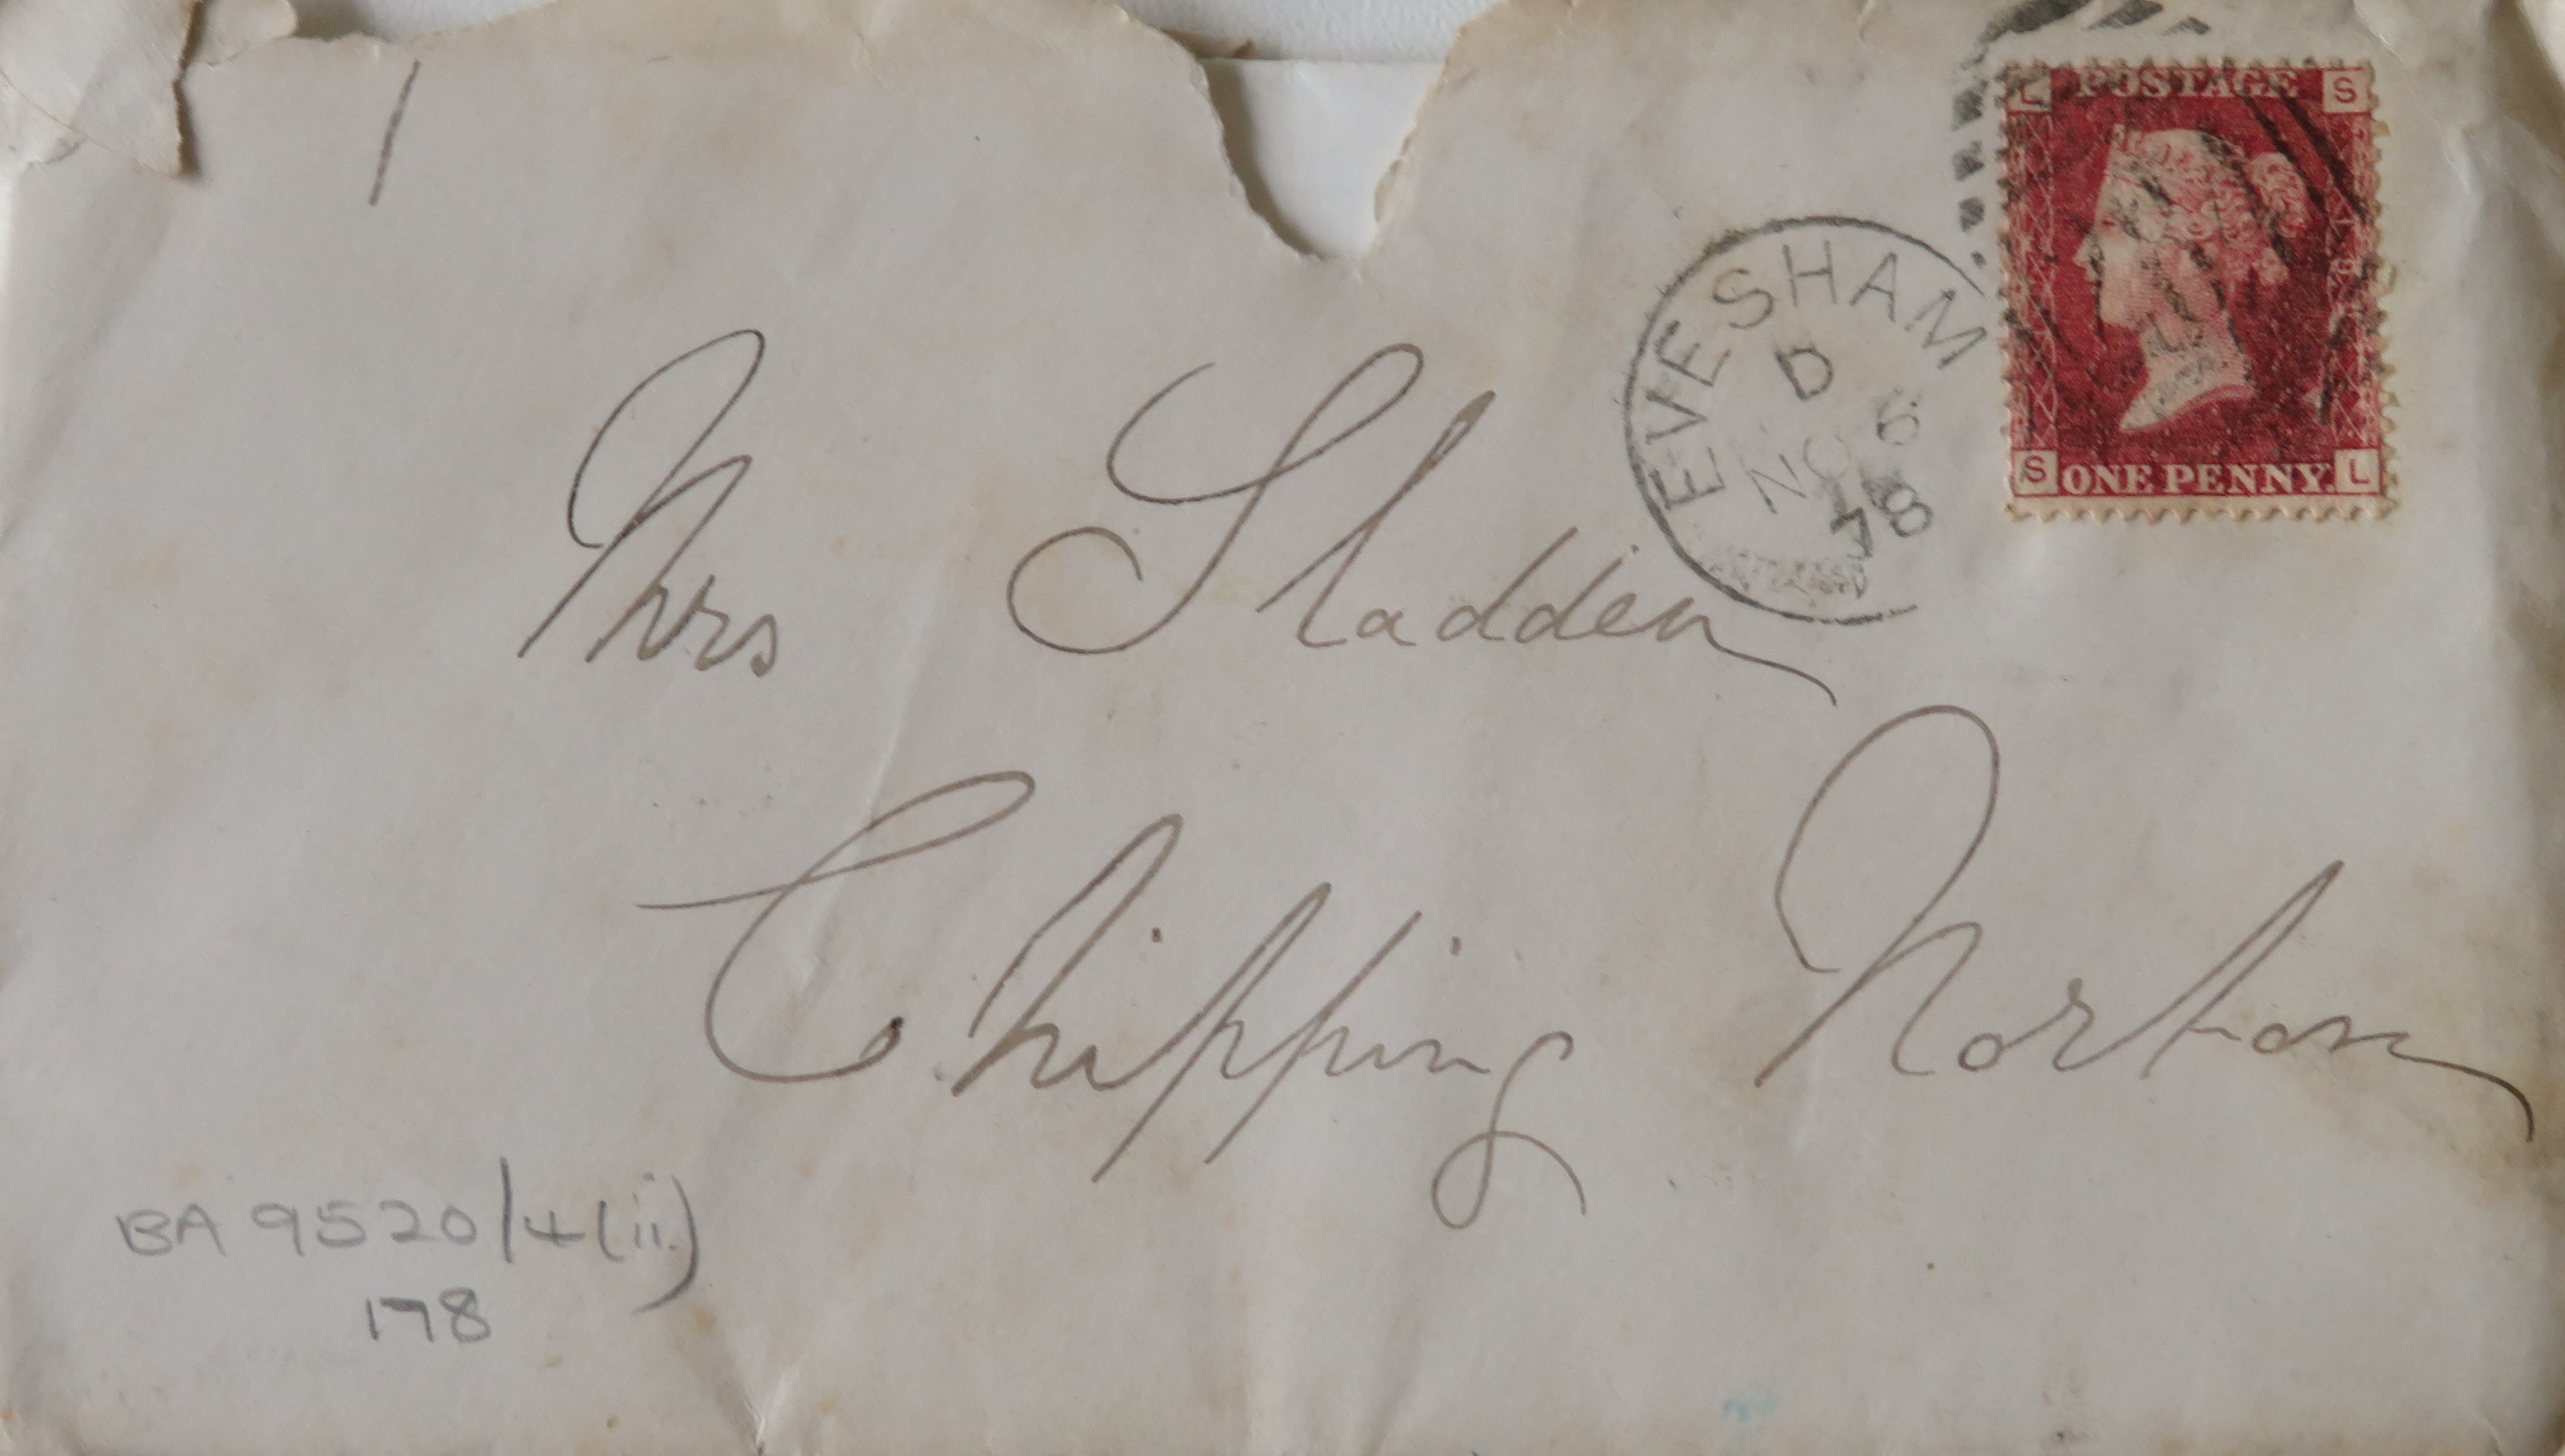 L POSTAGE S
S ONE PENNY. L
EVESHAM
D
NO 6
78
Mrs Sladden
Chipping Norton
BA 9520/4(ii)
178